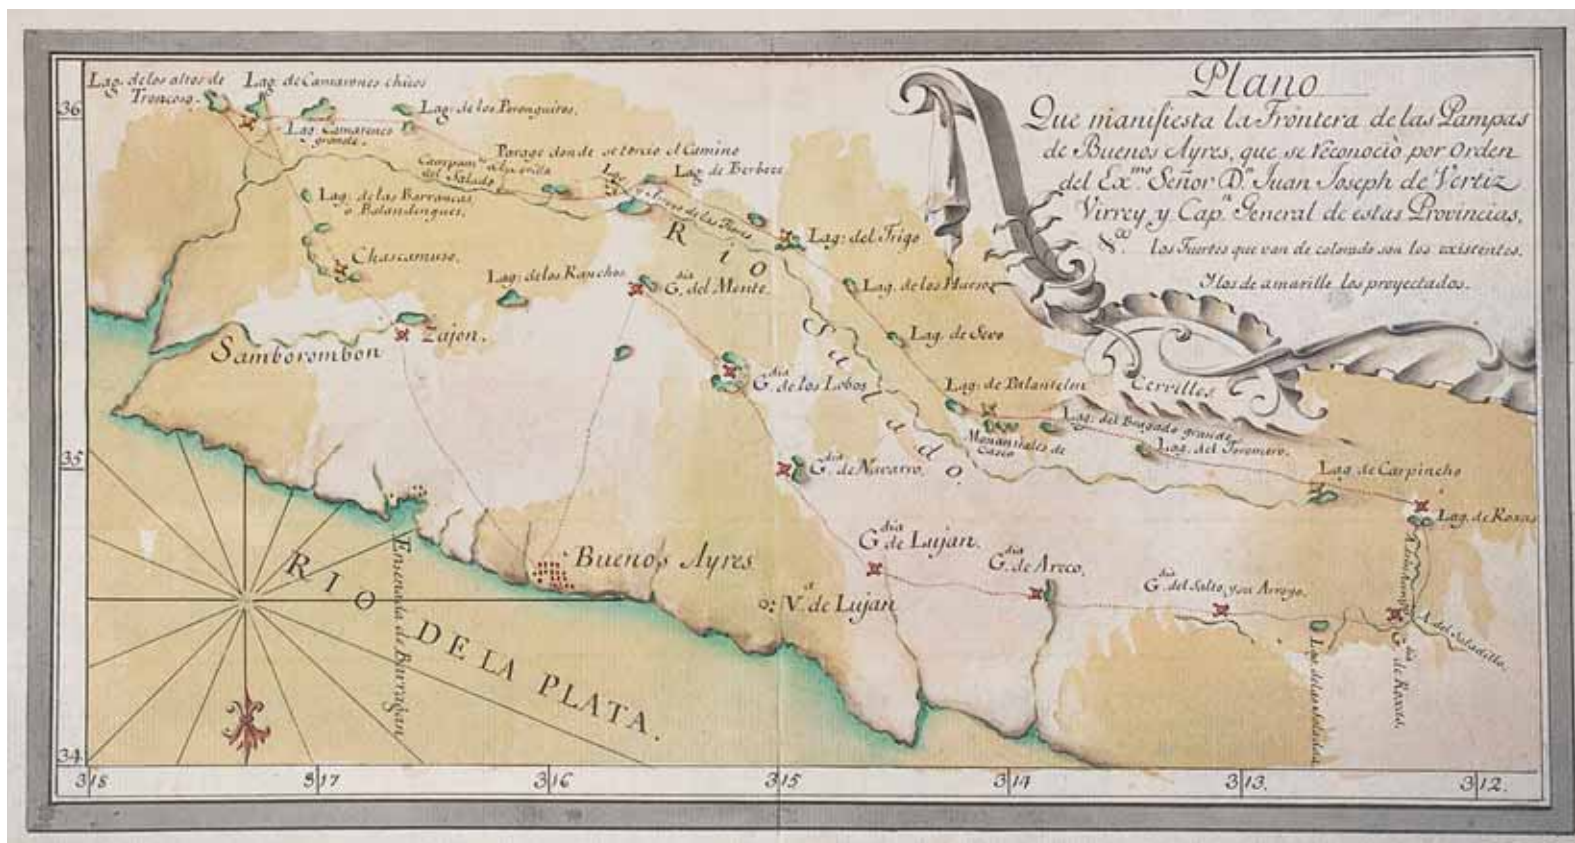 Plano
Que manifiesta la Frontera de las Pampas
de Buenos Ayres, que se reconociò por Orden
del Ex.mo Señor D.n Juan Joseph de Vertiz
Virrey y Cap.n General de estas Provincias,
Los Fuertes que van de colorado son los existentes.
Y los de amarillo los proyectados.
Lag. de los altos de
Troncoso.
Lag. de Camarones chicos
Lag. Camarones
grande.
Lag. de los Poronguitos.
36
Campam.to
del Salado
Parage donde se torcio el Camino
Lag. de las Barrancas
o Balandingues.
Chascamuso.
Lag. del Trigo
RIO Salado
Lag. de los Ranchos
G.dia del Monte.
Lag. de los Hueso
Lag. de Sevo
Samborombon
Zajon.
G.dia de los Lobos
Lag. de Palantelu
Cerrillos
Lag. del Bragado grande
Manantiales de
Casco
Lag. del Toromoro.
35
G.dia de Navarro.
Lag. de Carpincho
Lag. de Roxas
G.dia de Lujan.
G.dia de Areco.
G.dia del Salto, y su Arroyo.
Buenos Ayres
V.a de Lujan
A. del Saladillo.
G.dia de Roxas.
Ensenada de Barragan
RIO DE LA PLATA.
34
318 317 316 315 314 313. 312.